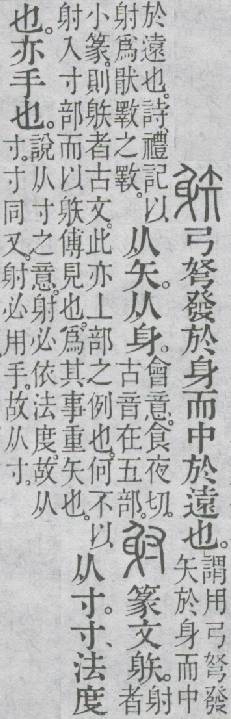 䠶弓弩發於身而中於遠也。謂用弓弩發
矢於身而中
於遠也。詩、禮記以
射爲厭斁之斁。从矢。从身。會意。食夜切。
古音在五部。射篆文䠶。射
者
小篆。則䠶者古文。此亦丄部之例也。何不以
射入寸部而以䠶傅見也。爲其事重矢也。从寸。寸、法度
也。亦手也。說从寸之意。射必依法度。故从
寸。寸同又。射必用手。故从寸。